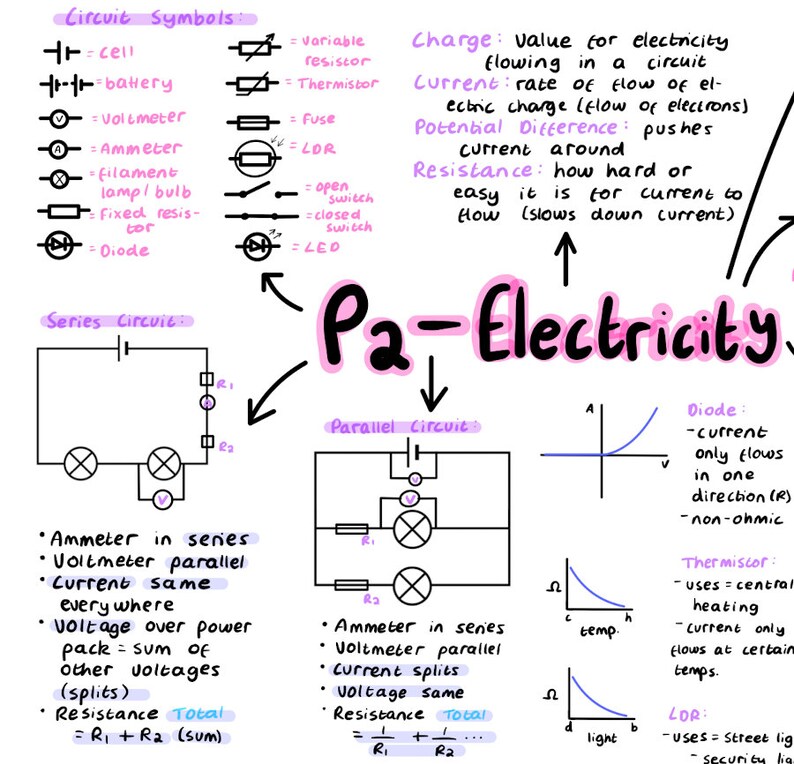 Circuit Symbols:
= cell
= battery
= Voltmeter
= Ammeter
= filament
lamp/bulb
= fixed resis-
tor
= Diode
= variable
resistor
= Thermistor
= Fuse
= LDR
= open
switch
= closed
switch
= LED
V
A
Charge: Value for electricity
flowing in a circuit
Current: rate of flow of el-
ectric charge (flow of electrons)
Potential Difference: pushes
current around
Resistance: how hard or
easy it is for current to
flow (slows down current)
P2 - Electricity
Series Circuit:
R1
A
R2
V
• Ammeter in series
• Voltmeter parallel
• Current same
everywhere
• Voltage over power
pack = sum of
other voltages
(splits)
• Resistance Total
= R1 + R2 (sum)
Parallel Circuit:
V
V
R1
R2
• Ammeter in series
• Voltmeter parallel
• Current splits
• Voltage same
• Resistance Total
= 1/R1 + 1/R2 ...
A
V
Diode:
- current
only flows
in one
direction (R)
- non-ohmic
Ω
c h
temp.
Thermistor:
- uses = central
heating
- current only
flows at certain
temps.
Ω
d b
light
LDR:
- uses = street lig
- security lig